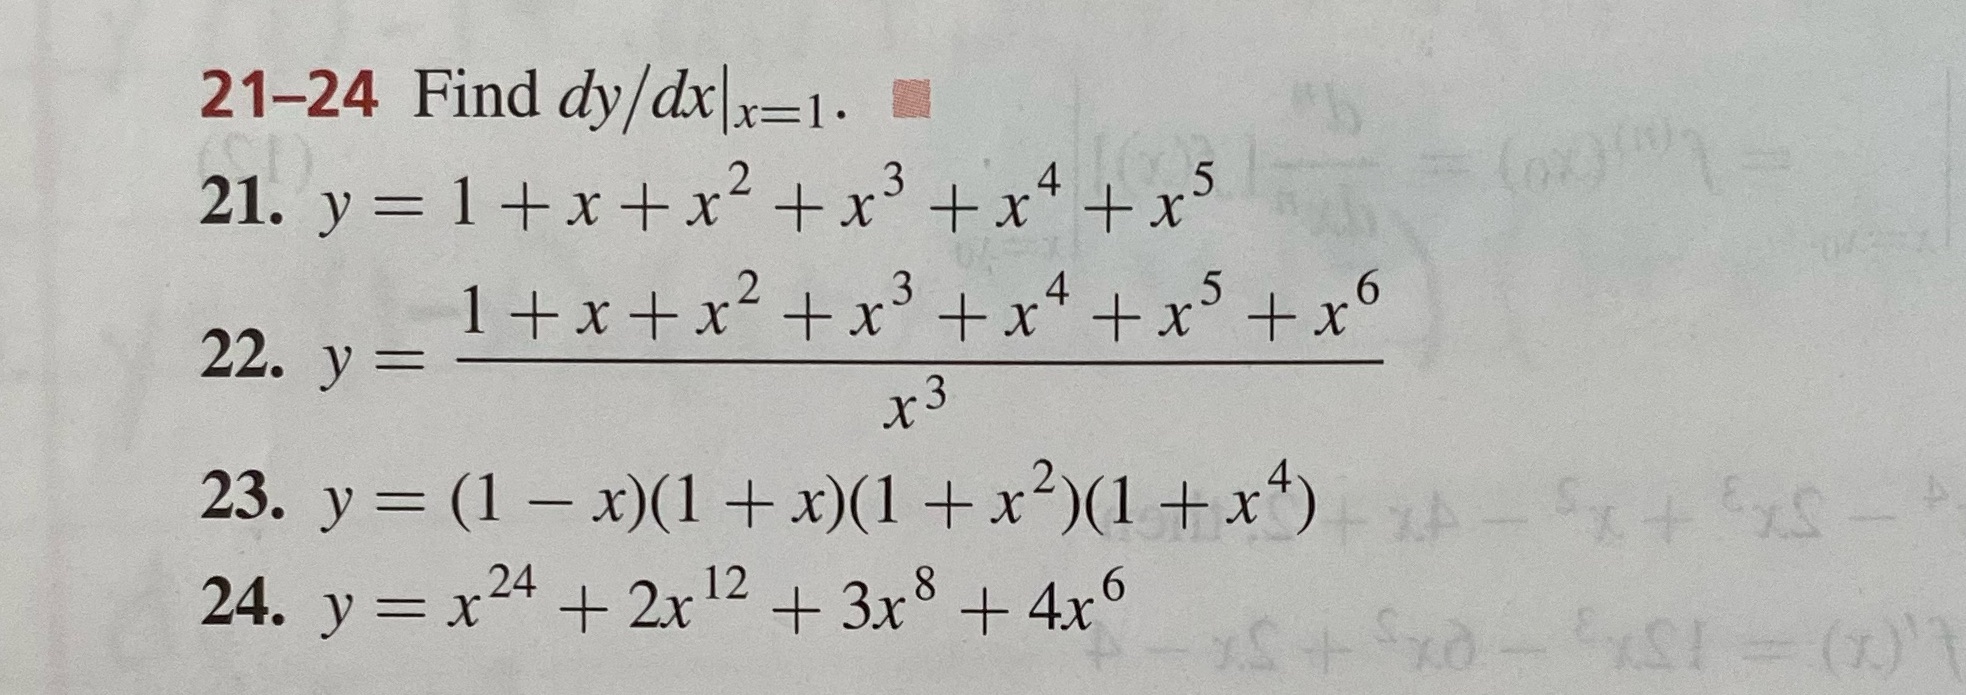 21–24 Find dy/dx|ₓ₌₁.
21. y = 1 + x + x² + x³ + x⁴ + x⁵
22. y = (1 + x + x² + x³ + x⁴ + x⁵ + x⁶) / x³
23. y = (1 − x)(1 + x)(1 + x²)(1 + x⁴)
24. y = x²⁴ + 2x¹² + 3x⁸ + 4x⁶